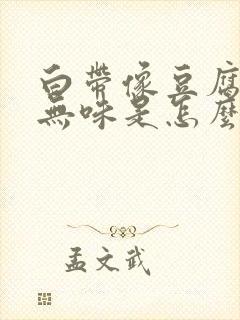 白帶像豆腐
無味是怎麼
孟文武